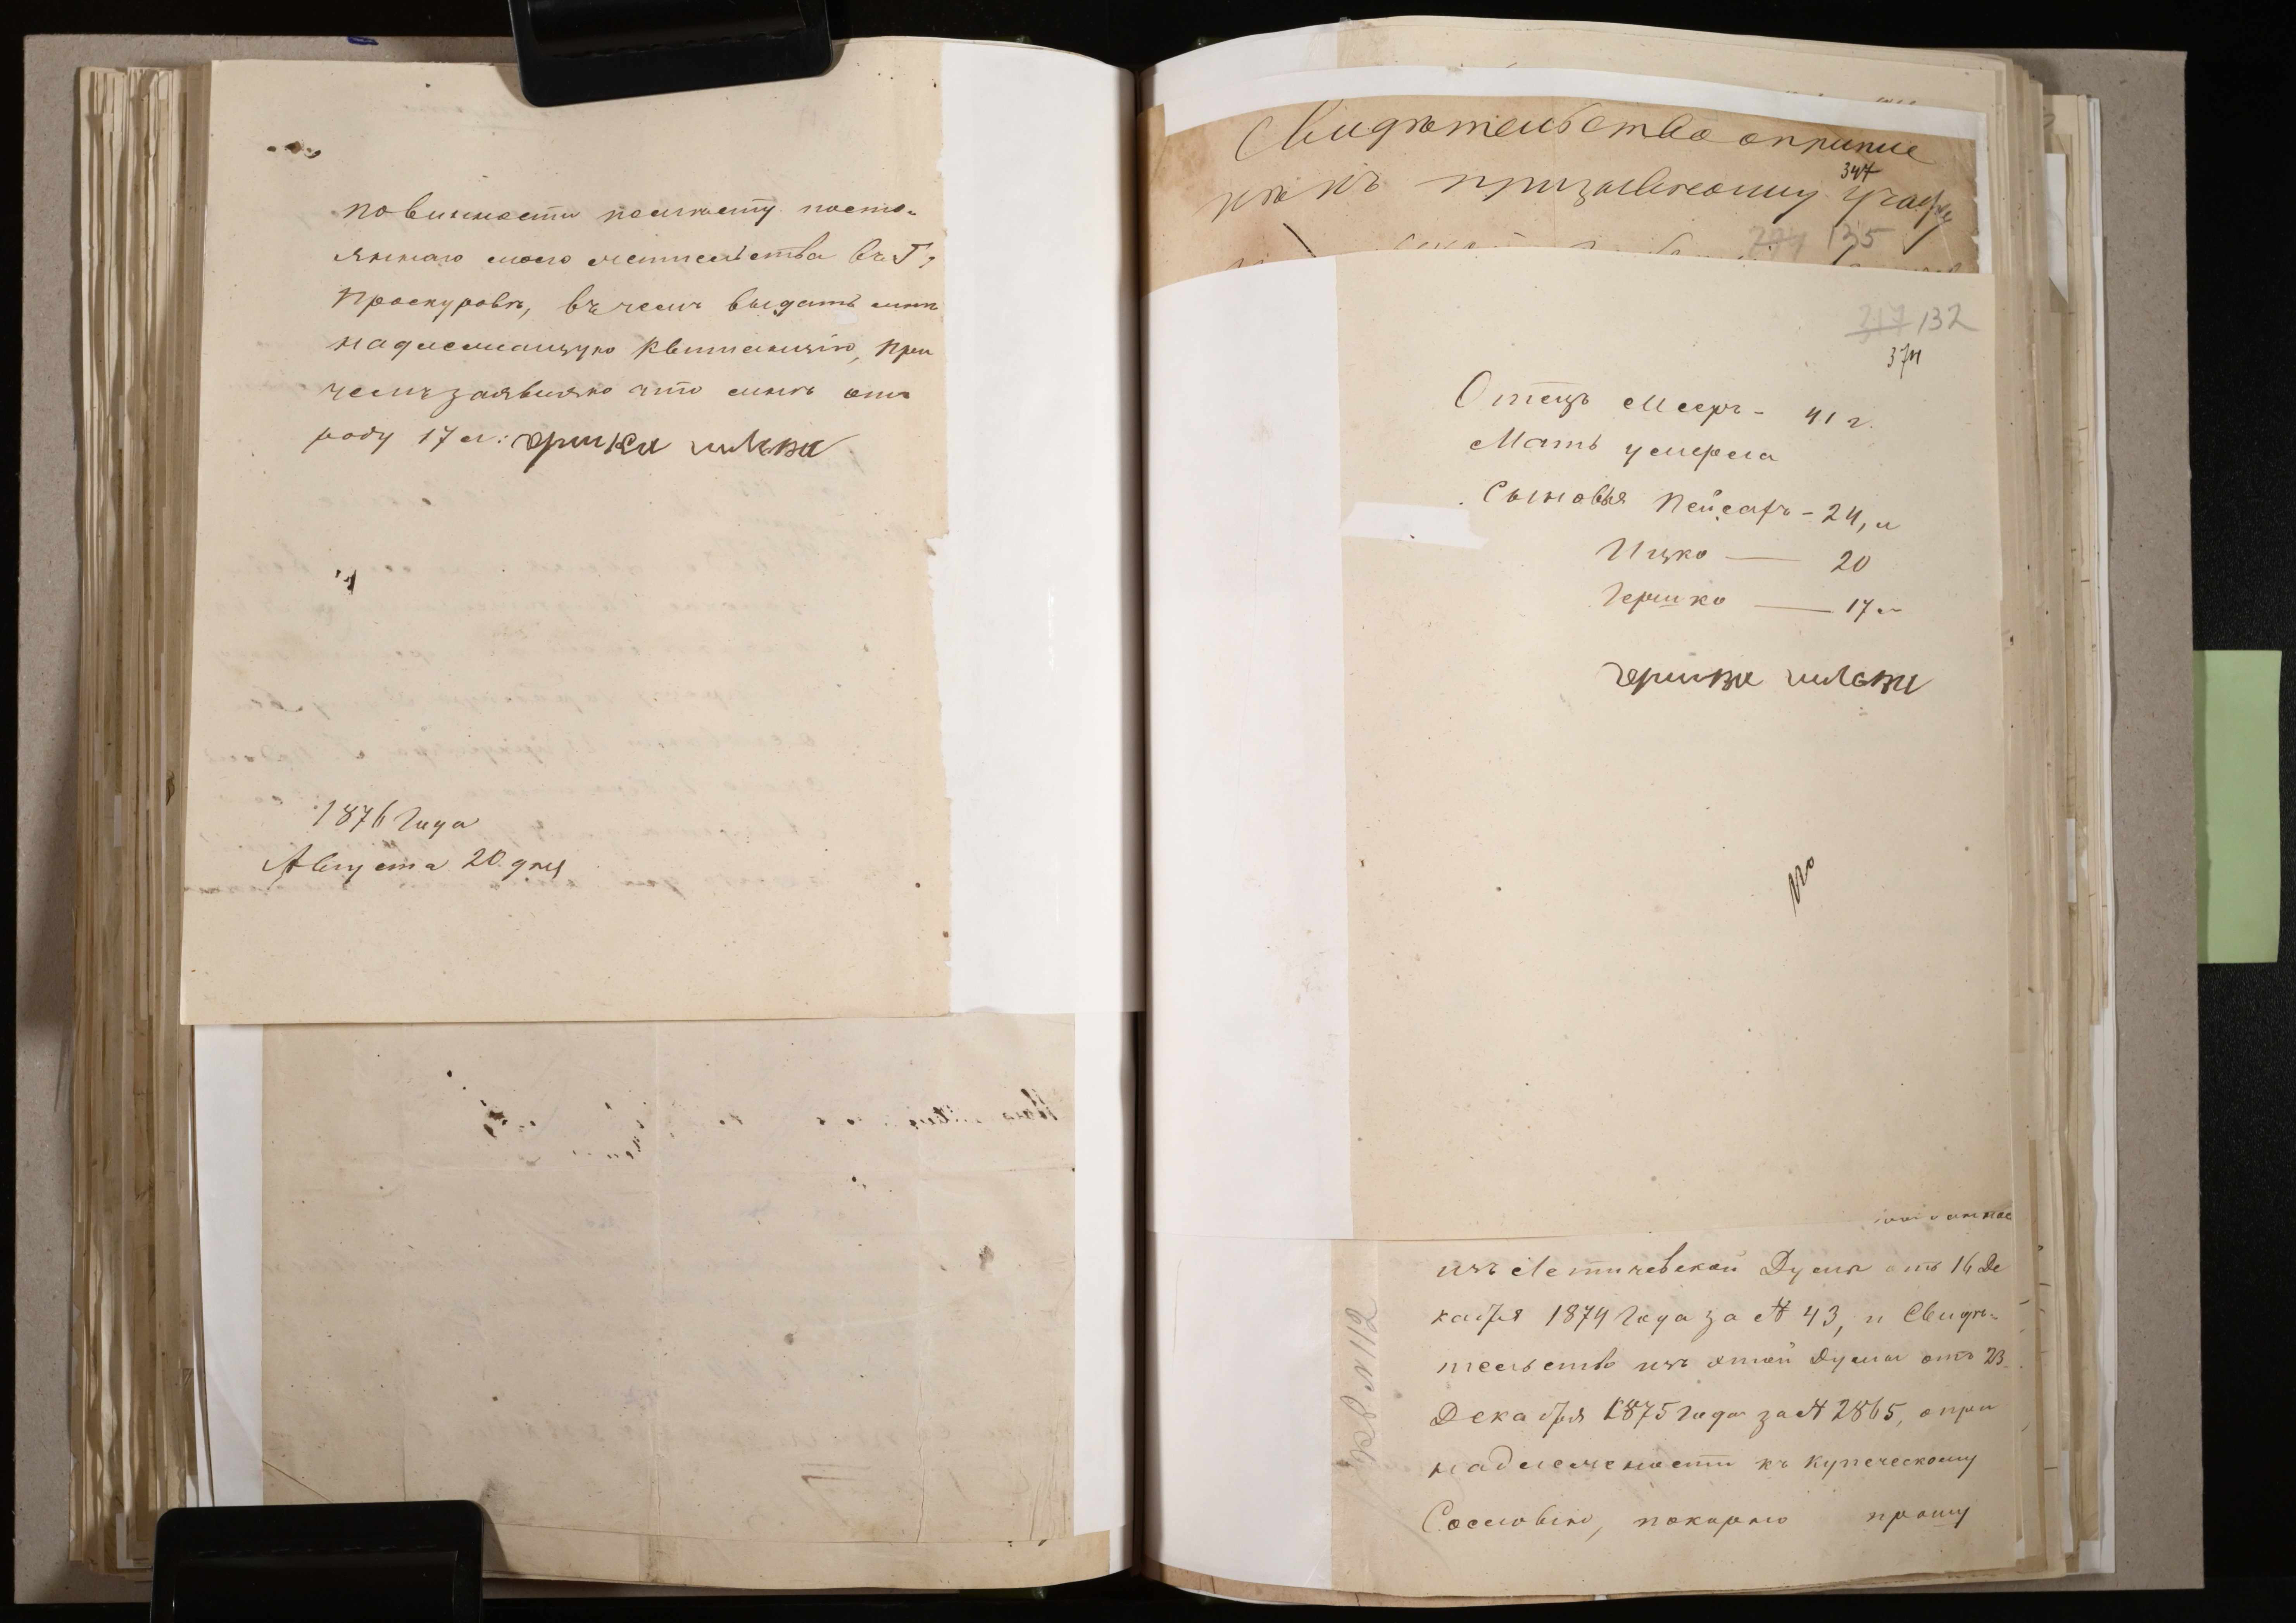 повинности по мѣсту посто-
яннаго моего жительства въ Г,
Проскуровѣ, въ чемъ выдать мнѣ
надлежащую квитанцію, при
чемъ заявляю что мнѣ отъ
роду 17 л:
1876 Года
Августа 20 дня
Свидѣтельство о припис
кѣ къ призывному участку
344
135
132
374
Отецъ Мееръ - 41 г.
Мать умерла
Сыновья Пейсахъ - 24, л
Ицко — 20
Гершко — 17 л
изъ Летичевской Думы отъ 16 Де
кабря 1874 Года за № 43, и Свидѣ-
тельство изъ этой Думы отъ 23
Декабря 1875 Года за № 2865, о при
надлежности къ купеческому
Сословію, покорно прошу